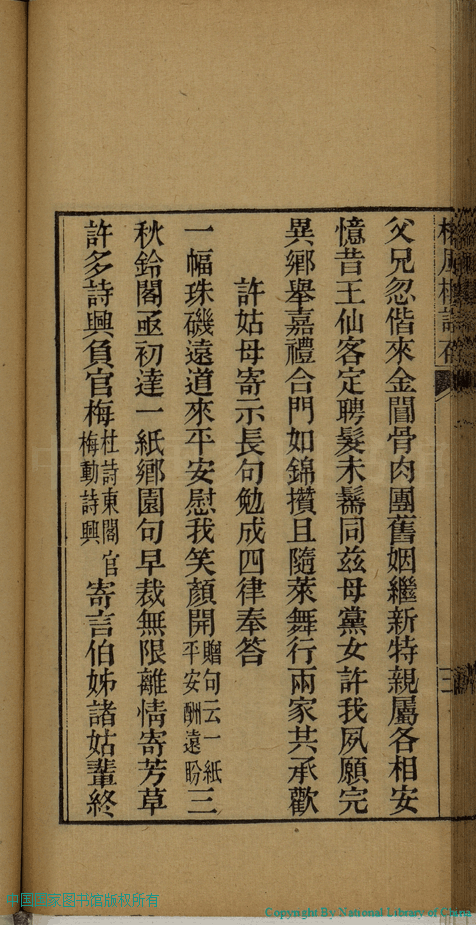 父兄忽偕來金閶骨肉團舊姻繼新特親屬各相安
憶昔王仙客定聘髮未鬀同兹母黨女許我夙願完
異鄉舉嘉禮合門如錦攢且隨萊舞行兩家共承歡
許姑母寄示長句勉成四律奉答
一幅珠磯遠道來平安慰我笑顏開贈句云一紙平安酬遠盼三
秋鈴閣亟初達一紙鄉園句早裁無限離情寄芳草
許多詩興負官梅杜詩東閣官梅動詩興寄言伯姊諸姑輩終
三
中国国家图书馆版权所有
Copyright By National Library of China